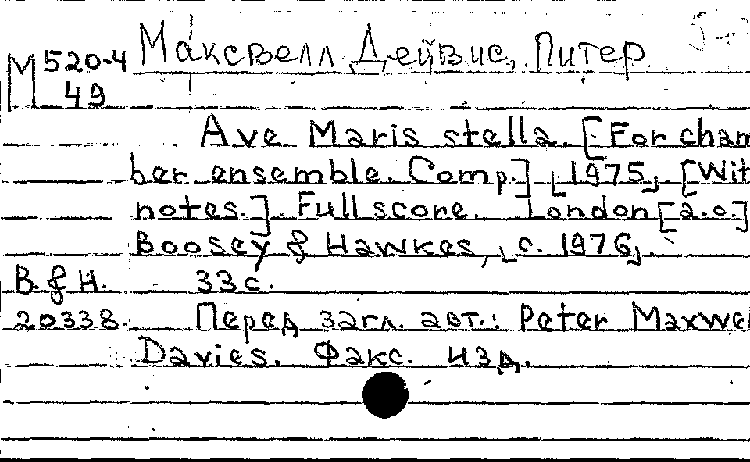 М 520-4 Максвелл Дейвис, Питер
49
Ave Maris stella. [For cham
ber ensemble. Comp.] [1975]. [Wit
notes.]. Full score. London [a.o.]
Boosey & Hawkes, [c. 1976].
B. & H. 33 с.
20338. Перед загл. авт.: Peter Maxwel
Davies. Факс. изд.